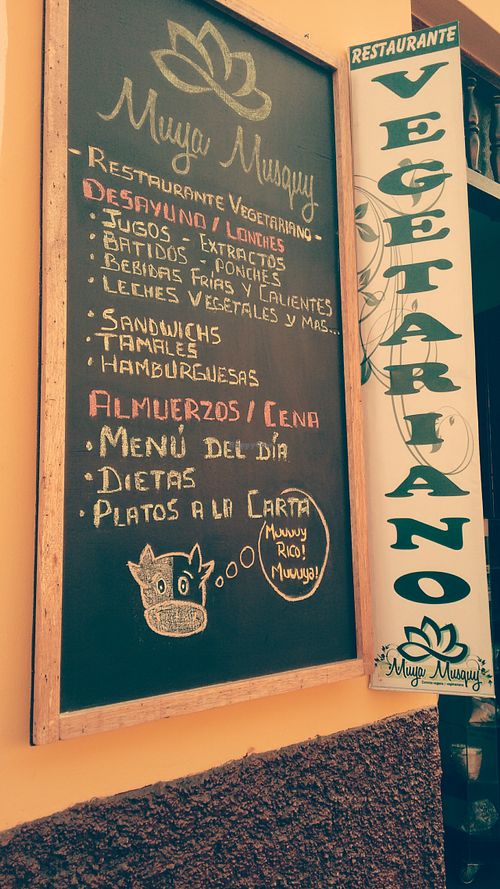 Muya Musquy
- Restaurante Vegetariano -
Desayuno / Lonches
• Jugos - Extractos
• Batidos - Ponches
• Bebidas Frias y Calientes
• Leches Vegetales y Mas...
• Sandwichs
• Tamales
• Hamburguesas
Almuerzos / Cena
• Menú del día
• Dietas
• Platos a la Carta
Muuuuy
Rico!
Muuuya!
RESTAURANTE
VEGETARIANO
Muya Musquy